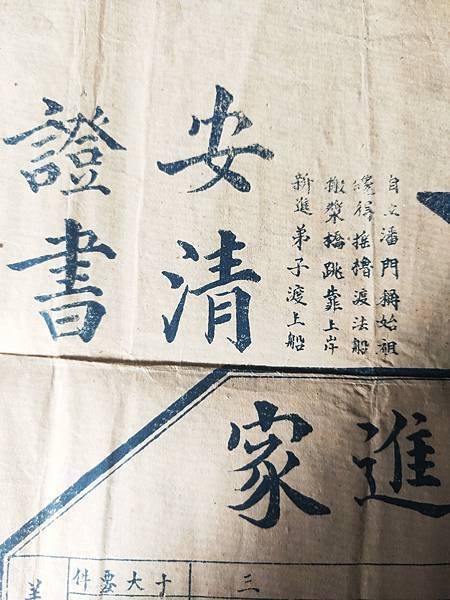 自立潘門稱始祖
纔得搖櫓渡法船
搬槳橋跳靠上岸
新進弟子渡上船
安清
證書
進家
三
十大要件